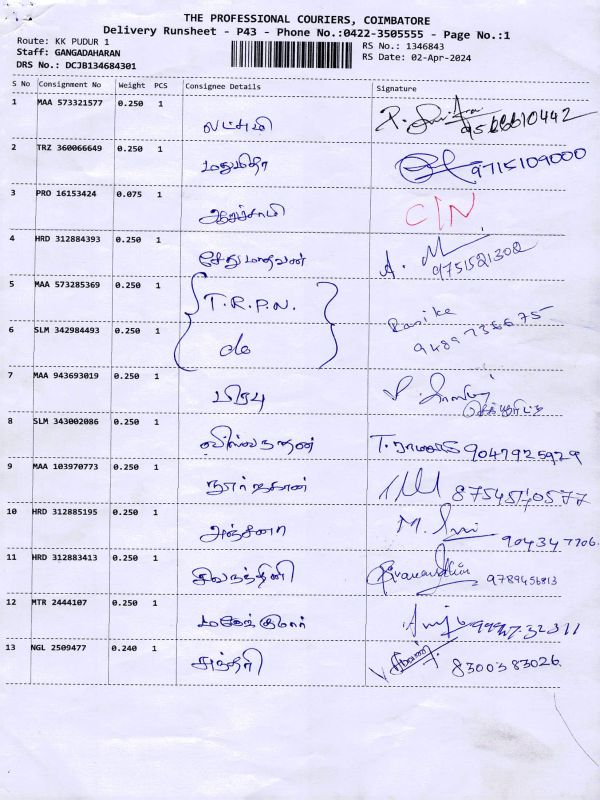 THE PROFESSIONAL COURIERS, COIMBATORE
Delivery Runsheet - P43 - Phone No.:0422-3505555 - Page No.:1
Route: KK PUDUR 1
Staff: GANGADAHARAN
DRS No.: DCJB134684301
RS No.: 1346843
RS Date: 02-Apr-2024
S No Consignment No Weight PCS Consignee Details Signature
1 MAA 573321577 0.250 1 லட்சுமி
2 TRZ 360066649 0.250 1 மதுமிதா 9715109000
3 PRO 16153424 0.075 1 ஆறுச்சாமி C/N
4 HRD 312884393 0.250 1 சேதுமாதவன் A. M 9751521302
5 MAA 573285369 0.250 1 T.R.P.N.
6 SLM 342984493 0.250 1 do
7 MAA 943693019 0.250 1 பிரபு
8 SLM 343002086 0.250 1 விஸ்வநாதன் 9047925929
9 MAA 103970773 0.250 1 8754570577
10 HRD 312885195 0.250 1 அஞ்சனா M.
11 HRD 312883413 0.250 1 சிவநந்தினி 9789456813
12 MTR 2444107 0.250 1 மகேஷ்குமார்
13 NGL 2509477 0.240 1 சுந்தரி 8300383026.